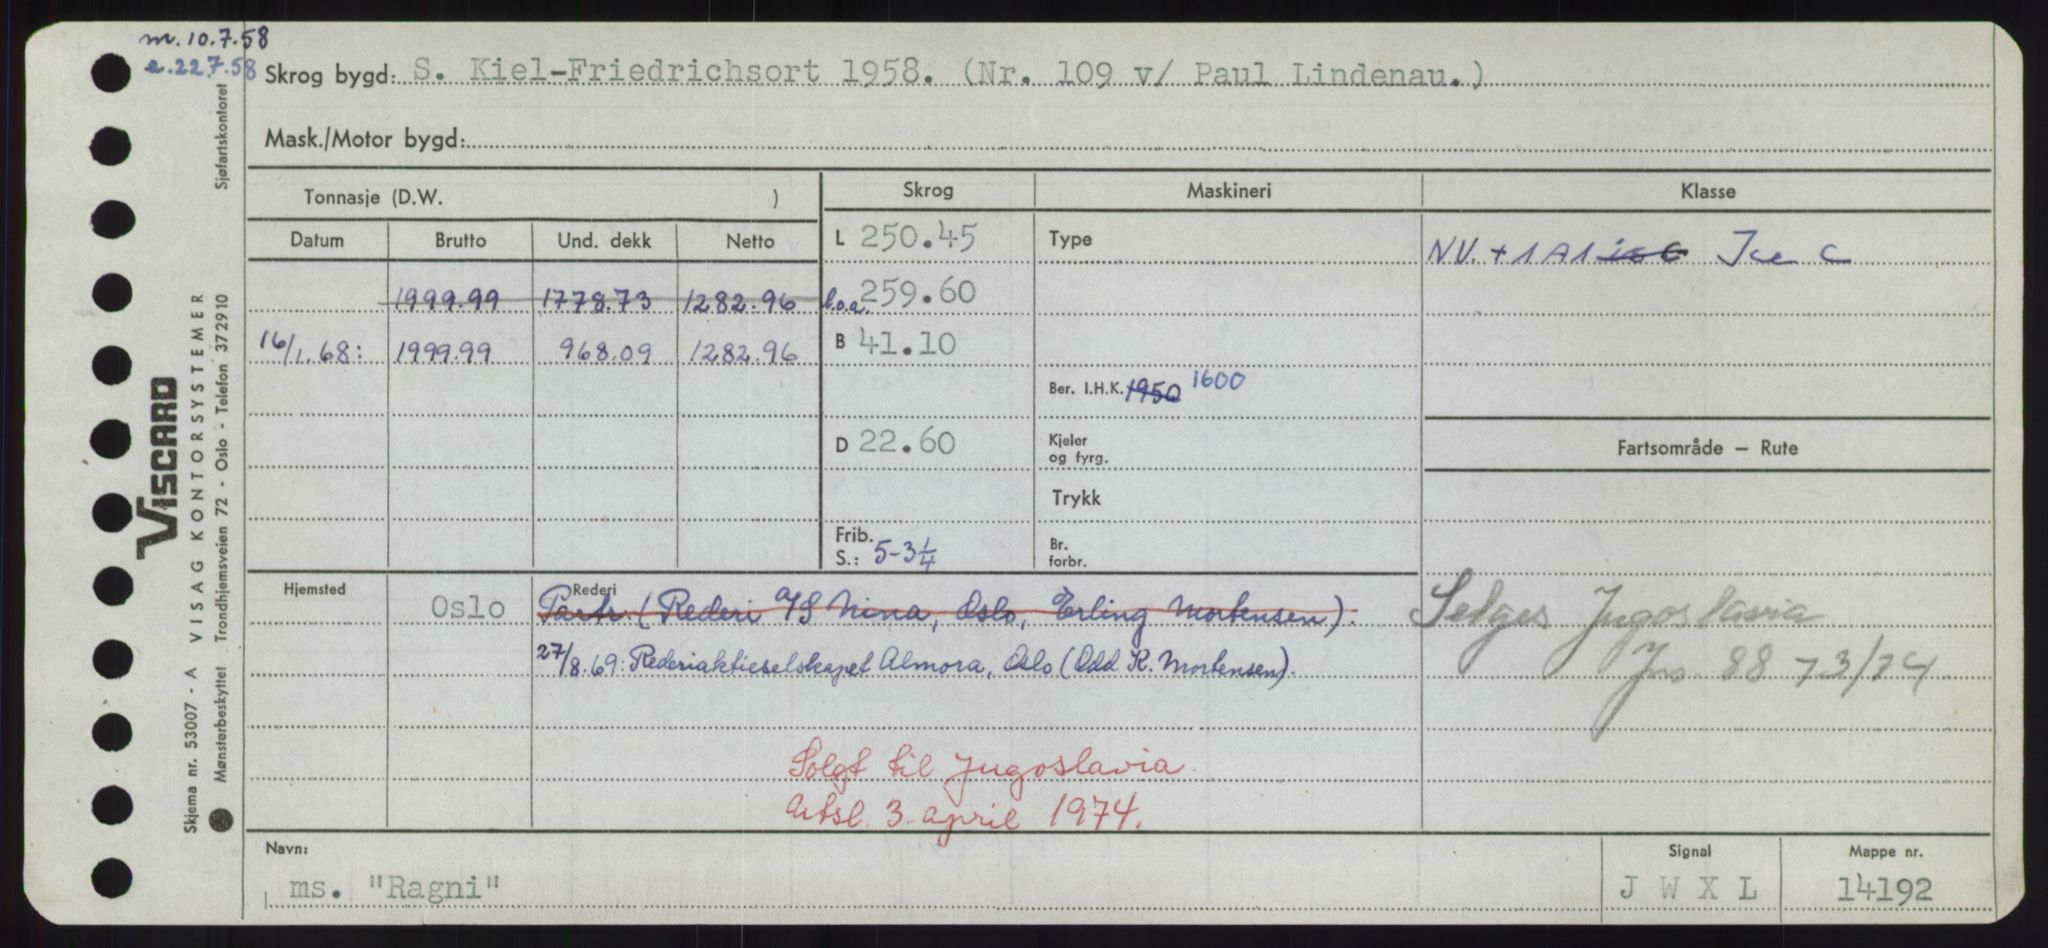 m. 10.7.58
e. 22.7.58 Skrog bygd: S. Kiel-Friedrichsort 1958. (Nr. 109 v/ Paul Lindenau.)
Mask./Motor bygd:
Tonnasje (D.W. ) Skrog Maskineri Klasse
Datum Brutto Und. dekk Netto L 250.45 Type NV. + 1A1 is C Ice C
1999.99 1778.73 1282.96 l.o.a. 259.60
16/1.68: 1999.99 968.09 1282.96 B 41.10
Ber. I.H.K. 1950 1600
D 22.60 Kjeler og fyrg. Fartsområde — Rute
Trykk
Frib. S.: 5-3 1/4 Br. forbr.
Hjemsted Oslo Rederi
Partr. (Rederi A/S Nina, Oslo, Erling Mortensen).
27/8.69: Rederiaktieselskapet Almora, Oslo (Odd K. Mortensen).
Selges Jugoslavia
Jno. 88 73/74
Solgt til Jugoslavia.
Utsl. 3. april 1974.
Navn: ms. "Ragni" Signal J W X L Mappe nr. 14192
Sjøfartskontoret
VISCARD
VISAG KONTORSYSTEMER
Trondhjemsveien 72 - Oslo - Telefon 372910
Skjema nr. 53007 - A
Mønsterbeskyttet